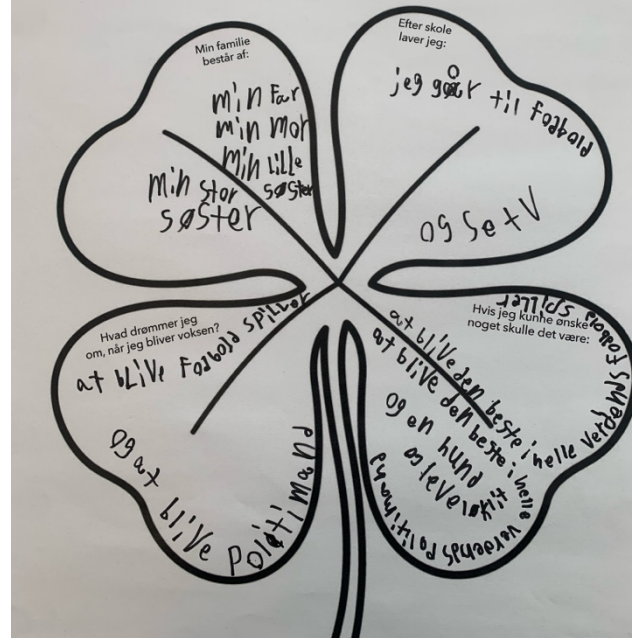 Min familie
består af:
min Far
min mor
min Lille
søster
min stor
søster
Efter skole
laver jeg:
jeg går til Fodbold
og Se tV
Hvad drømmer jeg
om, når jeg bliver voksen?
at bLive Fodbold spiller
og at blive Politimand
Hvis jeg kunne ønske
noget skulle det være:
at blive den beste i helle verdens fodbold spiller
at blive den beste i helle verdens Politimand
og en hund
og leve